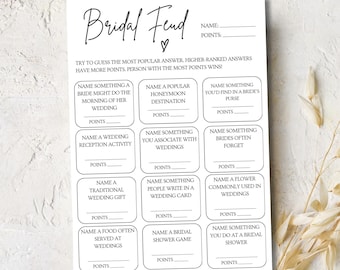 Bridal Feud
NAME:
POINTS WON:
TRY TO GUESS THE MOST POPULAR ANSWER. HIGHER-RANKED ANSWERS
HAVE MORE POINTS. PERSON WITH THE MOST POINTS WINS!
NAME SOMETHING A
BRIDE MIGHT DO THE
MORNING OF HER
WEDDING
POINTS
NAME A POPULAR
HONEYMOON
DESTINATION
POINTS
NAME SOMETHING
YOU'D FIND IN A BRIDE'S
PURSE
POINTS
NAME A WEDDING
RECEPTION ACTIVITY
POINTS
NAME SOMETHING
YOU ASSOCIATE WITH
WEDDINGS
POINTS
NAME SOMETHING
BRIDES OFTEN
FORGET
POINTS
NAME A
TRADITIONAL
WEDDING GIFT
POINTS
NAME SOMETHING
PEOPLE WRITE IN A
WEDDING CARD
POINTS
NAME A FLOWER
COMMONLY USED IN
WEDDINGS
POINTS
NAME A FOOD OFTEN
SERVED AT
WEDDINGS
POINTS
NAME A BRIDAL
SHOWER GAME
POINTS
NAME SOMETHING
YOU DO AT A BRIDAL
SHOWER
POINTS